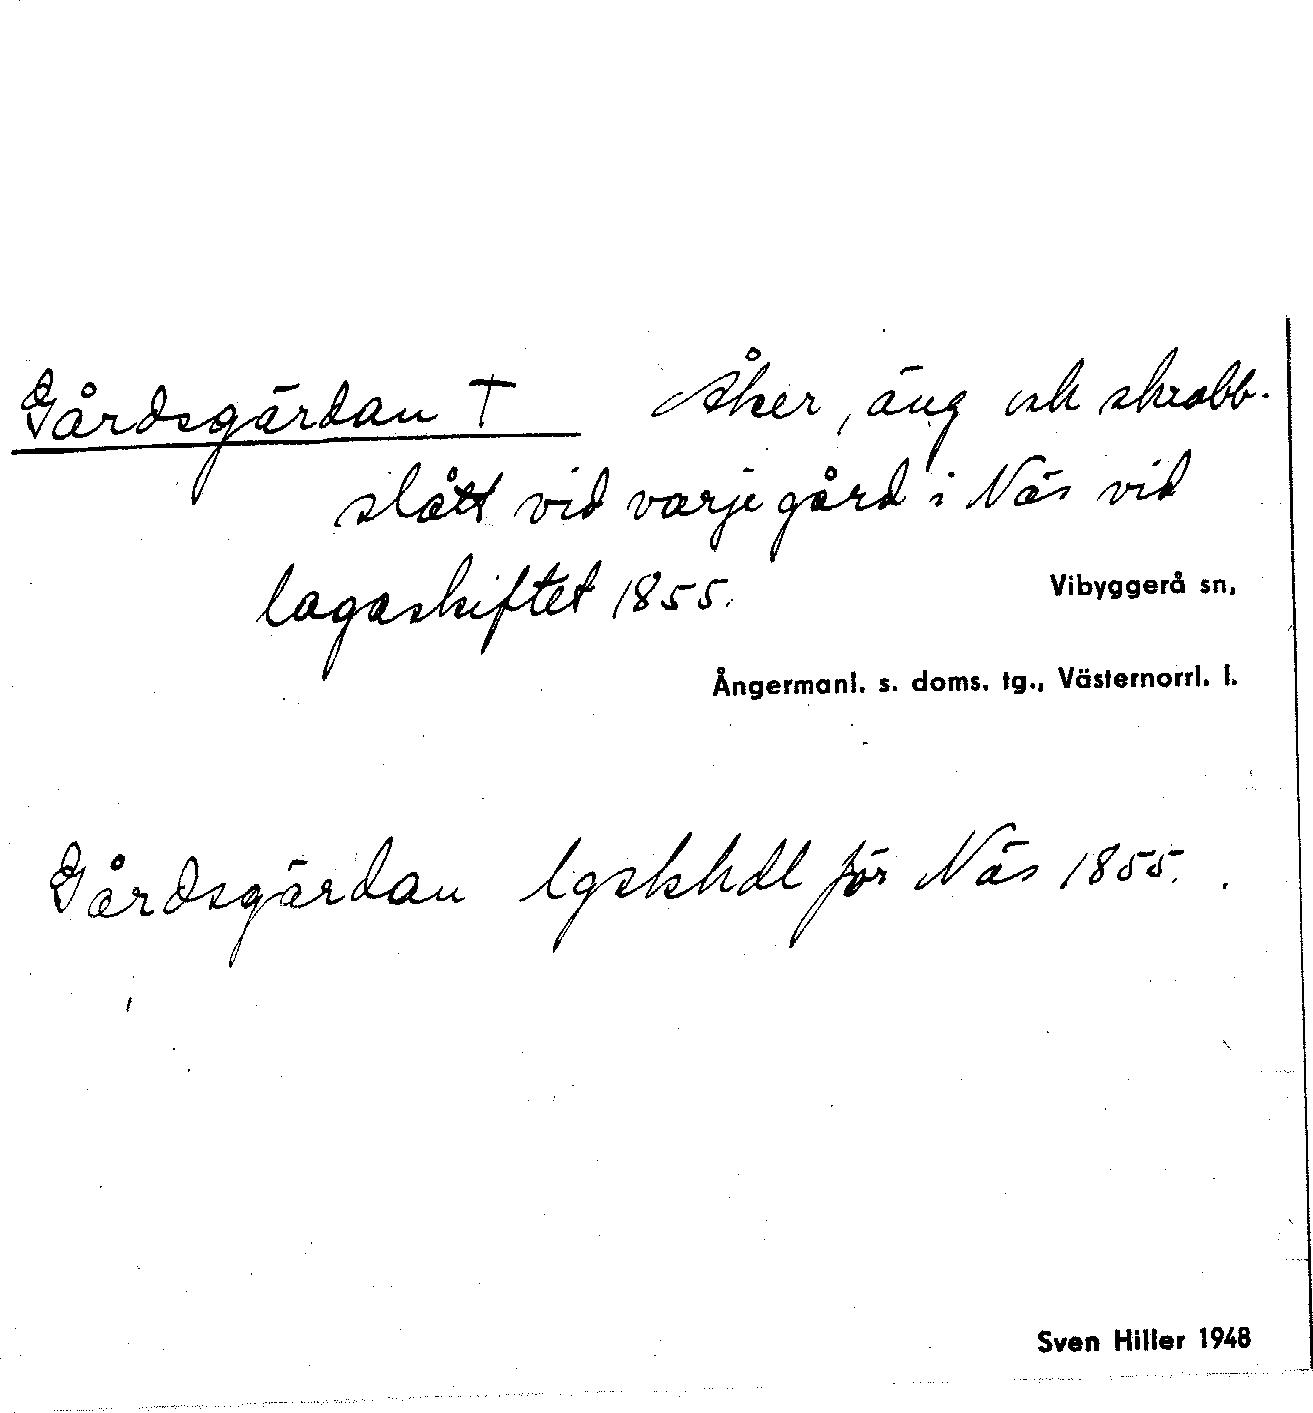 Gårdsgärdan † Åker, äng och skrabb-
slått vid varje gård i Näs vid
lagaskiftet 1855.
Vibyggerå sn,
Ångermanl. s. doms. tg., Västernorrl. l.
Gårdsgärdan lgskhdl för Näs 1855.
Sven Hiller 1948